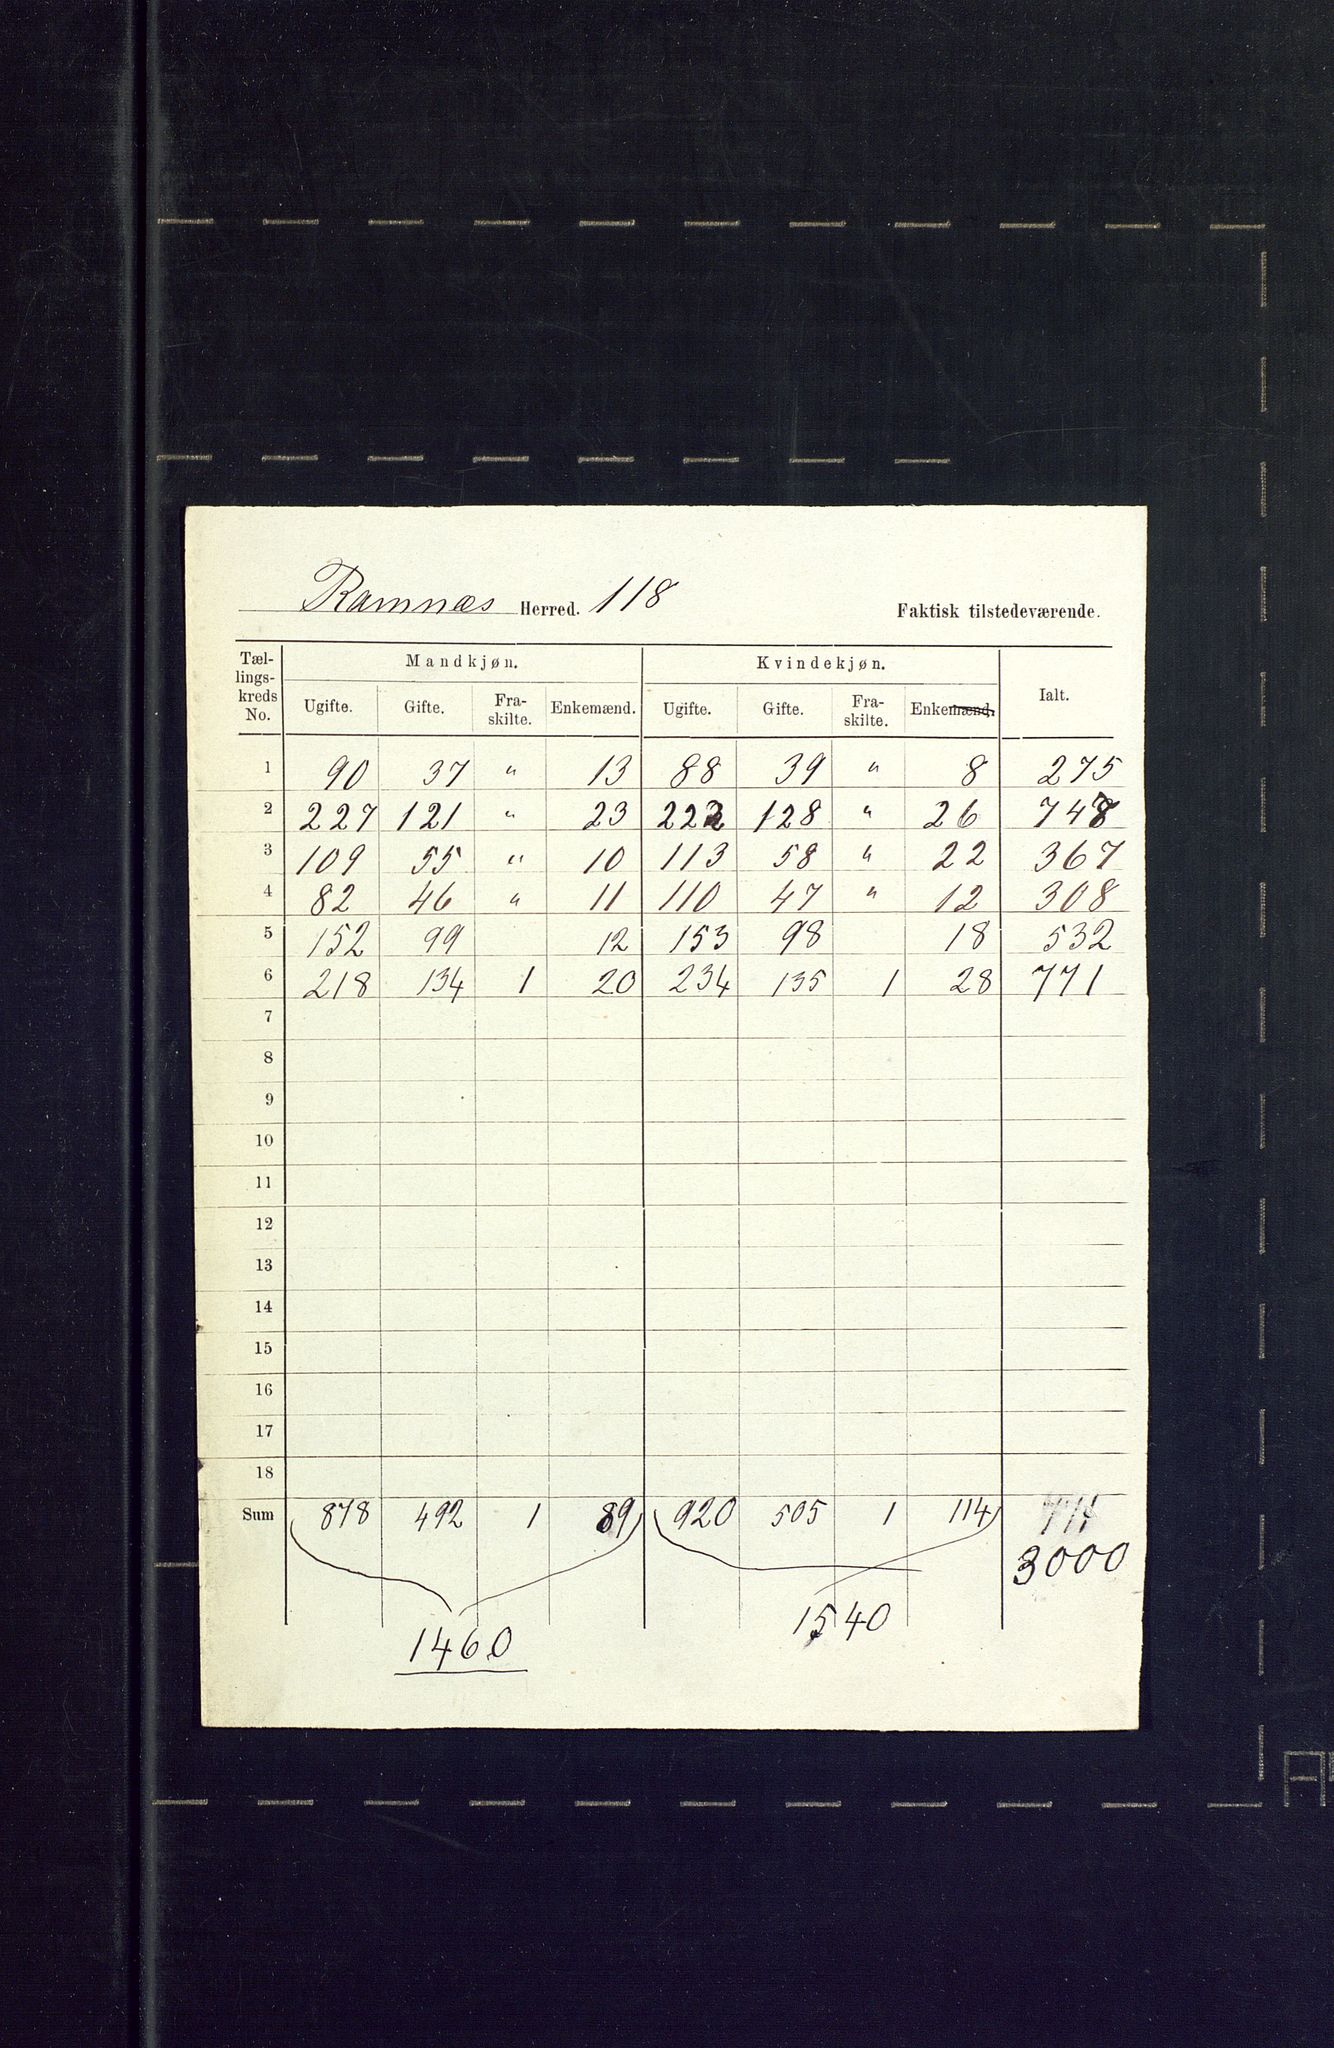 Ramnæs Herred. 118 Faktisk tilstedeværende.
Tællingskreds No. Mandkjøn. Kvindekjøn. Ialt.
Ugifte. Gifte. Fraskilte. Enkemænd. Ugifte. Gifte. Fraskilte. Enkemænd.
1 90 37 " 13 88 39 " 8 275
2 227 121 " 23 222 128 " 26 747
3 109 55 " 10 113 58 " 22 367
4 82 46 " 11 110 47 " 12 308
5 152 99 12 153 98 18 532
6 218 134 1 20 234 135 1 28 771
7
8
9
10
11
12
13
14
15
16
17
18
Sum 878 492 1 89 920 505 1 114
3000
1460 1540